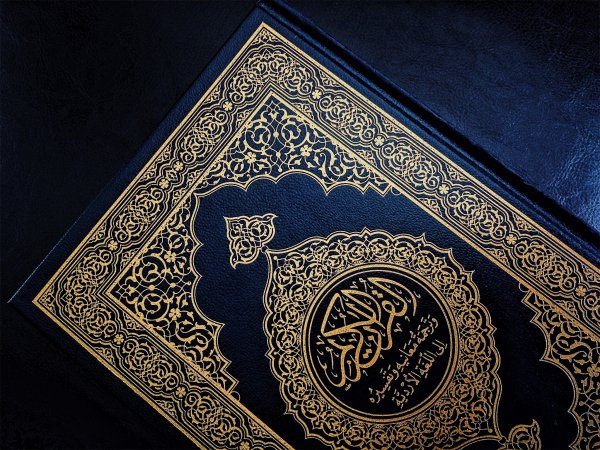 القرآن الكريم
وترجمة معانيه وتفسيره
إلى اللغة الأردية